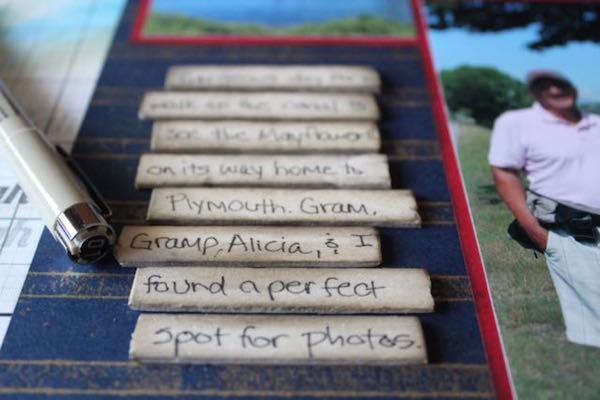 walk on the canal to
see the Mayflower
on its way home to
Plymouth. Gram,
Gramp, Alicia, & I
found a perfect
spot for photos.